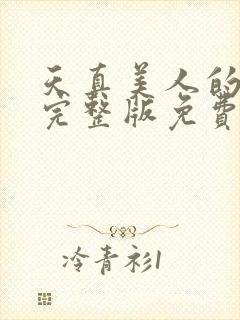 天真美人的
完整版免费
冷青衫1